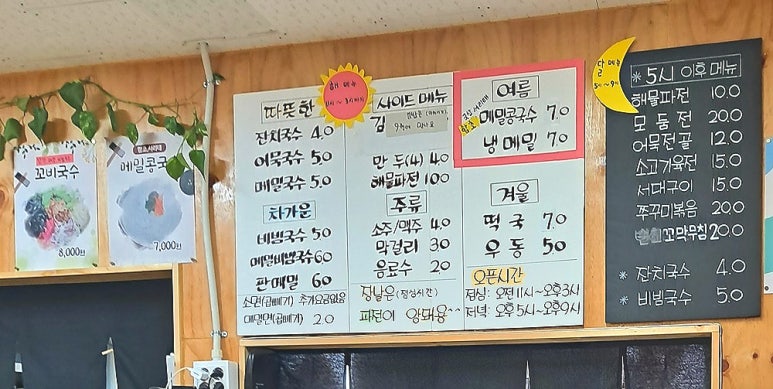 꼬비국수
8,000원
메밀콩국수
7,000원
해 메뉴
따뜻한
잔치국수 4.0
어묵국수 5.0
메밀국수 5.0
차가운
비빔국수 5.0
메밀비빔국수 6.0
판메밀 6.0
소면(곱빼기) 추가요금없음
메밀면(곱빼기) 2.0
사이드 메뉴
김
만두(4) 4.0
해물파전 10.0
주류
소주/맥주 4.0
막걸리 3.0
음료수 2.0
점날은(점심시간)
파전이 양해용^^
여름
메밀콩국수 7.0
냉메밀 7.0
겨울
떡국 7.0
우동 5.0
오픈시간
점심: 오전 11시~오후 3시
저녁: 오후 5시~오후 9시
달 메뉴
5시~9시
* 5시 이후 메뉴
해물파전 10.0
모둠전 20.0
어묵전골 12.0
소고기육전 15.0
서대구이 15.0
쭈꾸미볶음 20.0
꼬막무침 20.0
* 잔치국수 4.0
* 비빔국수 5.0